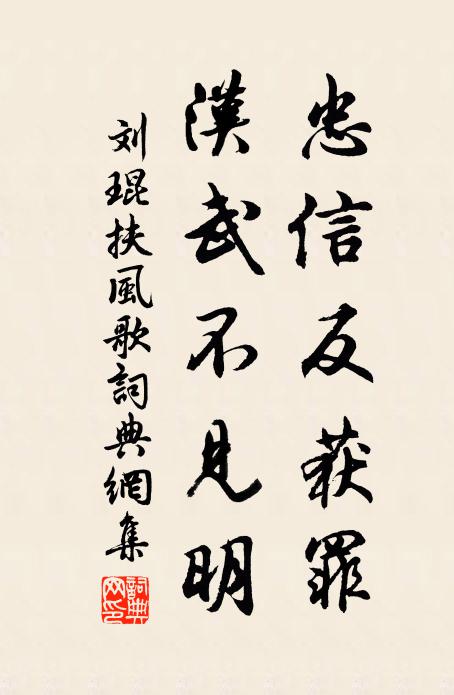 忠信反获罪
漢武不見明
刘琨扶風歌詞典網集
詞典
网印